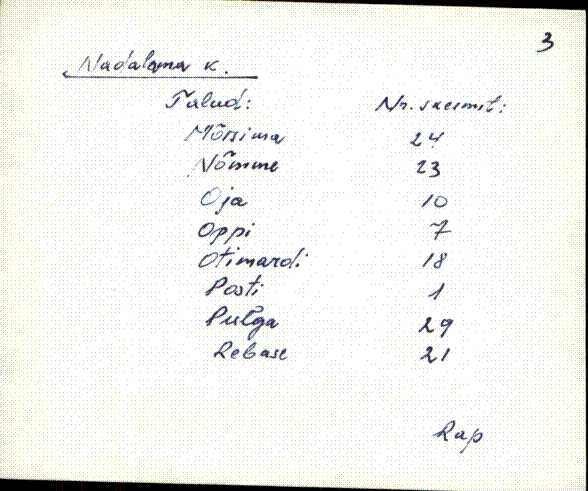 3
Nadalama k.
Talud: Nr. skeemit:
Mõisima 24
Nõmme 23
Oja 10
Oppi 7
Otimardi 18
Posti 1
Pulga 29
Rebase 21
Rap